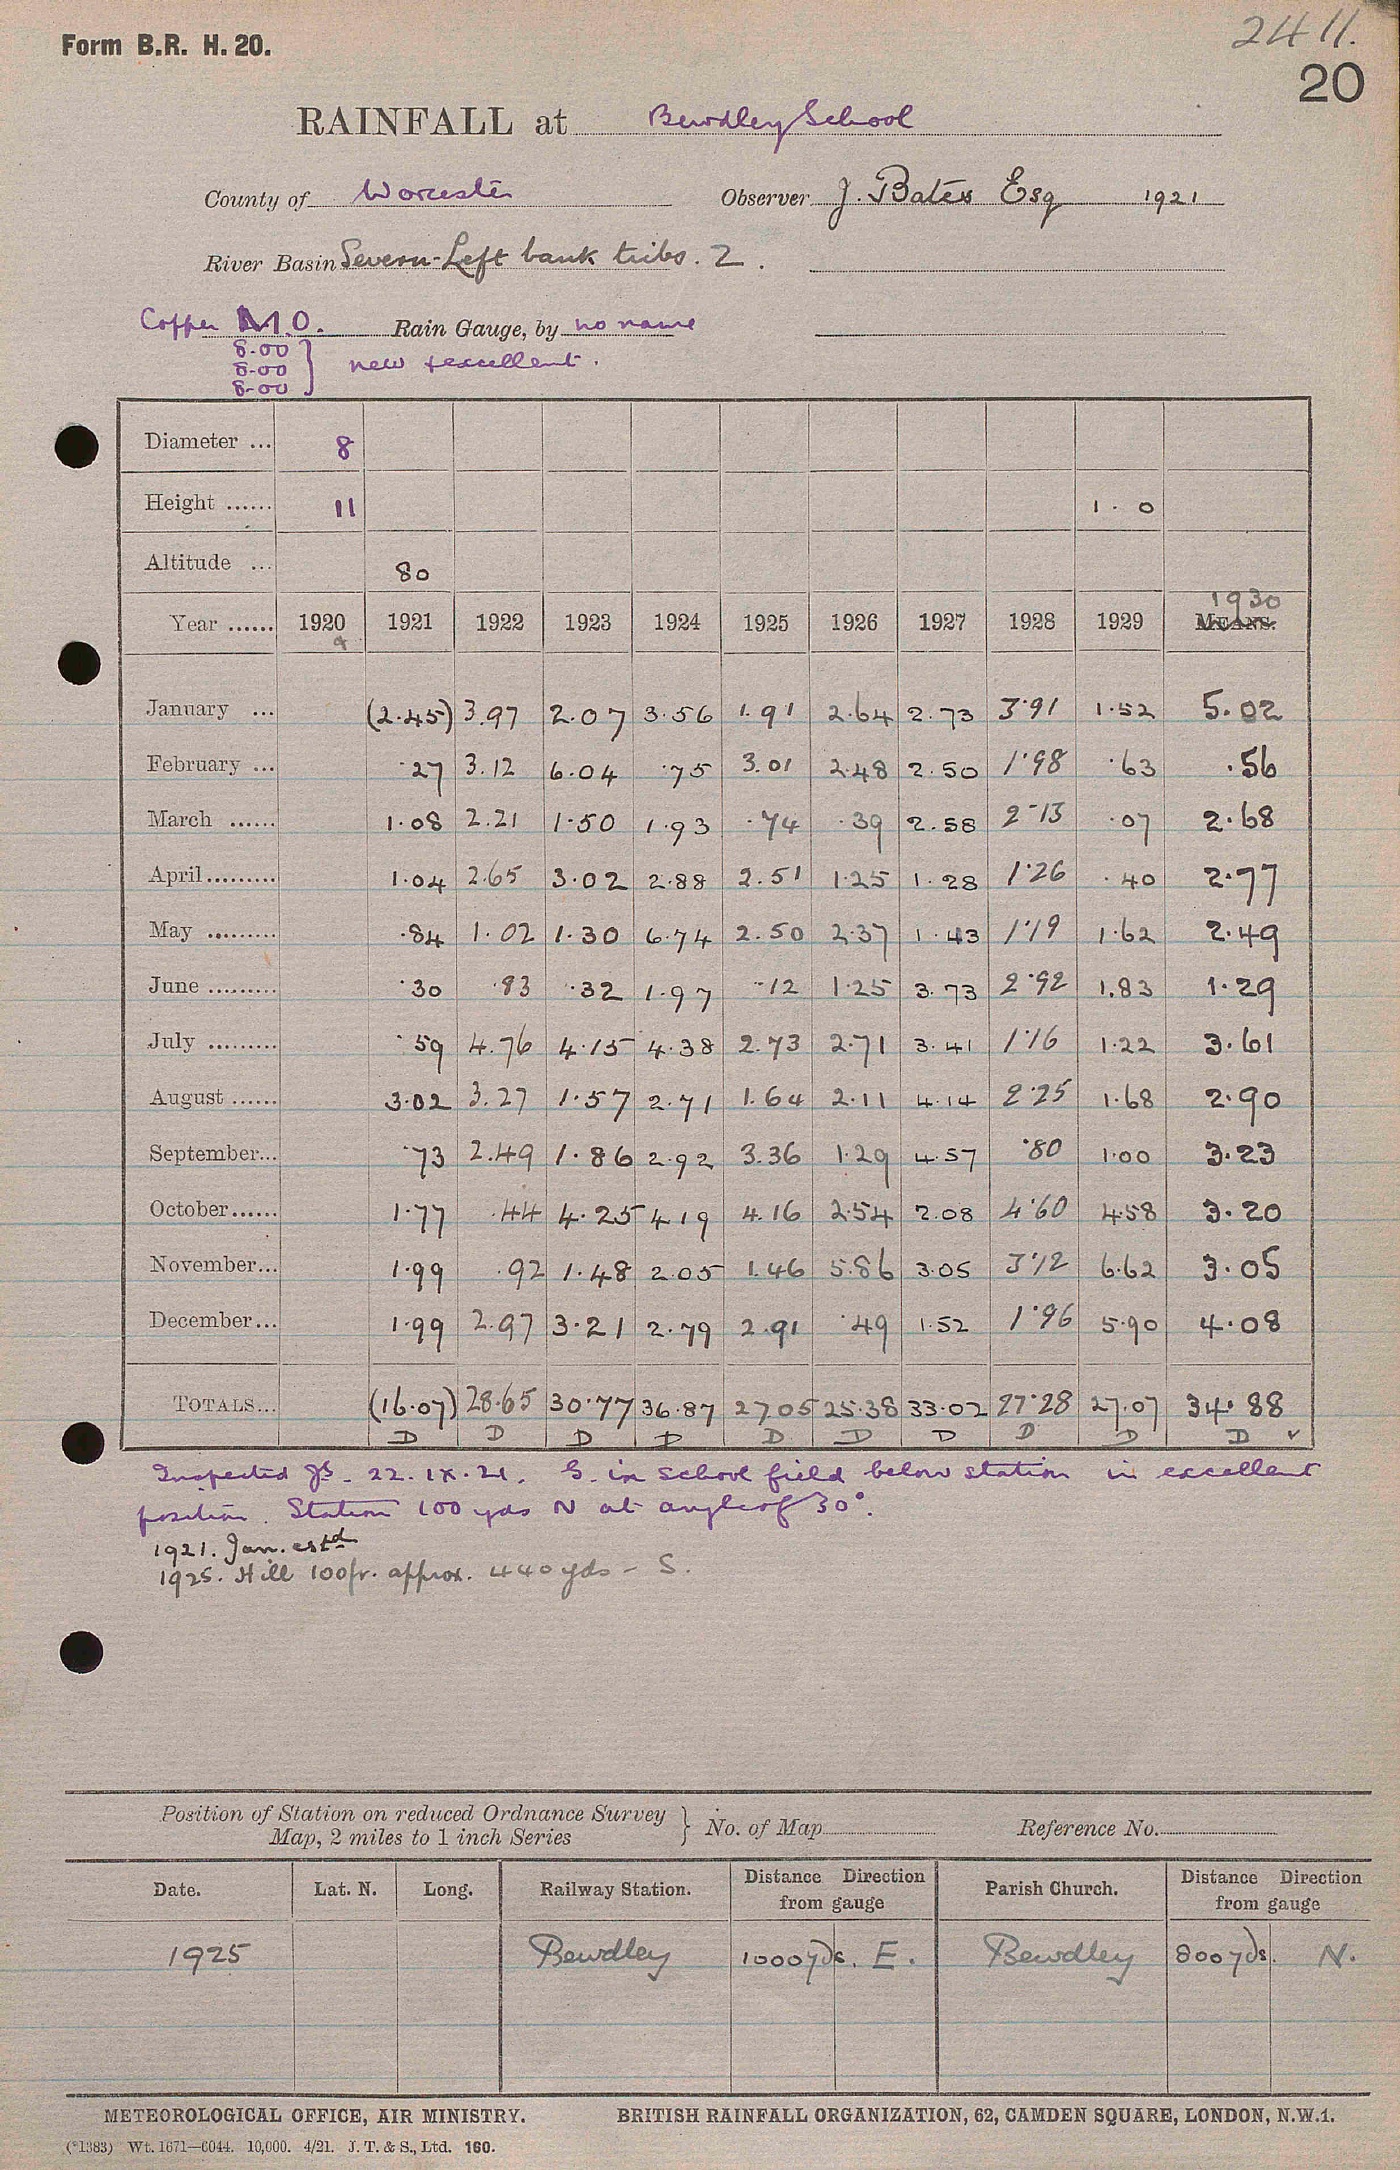 Form B.R. H. 20.
2411.
20
RAINFALL at Bewdley School
County of Worcester Observer J. Bates Esq 1921
River Basin Severn-Left bank tribs. 2.
Copper M.O. Rain Gauge, by no name
8.00
8.00 } new & excellent.
8.00
Diameter ... 8
Height ...... 11 1. 0
Altitude ... 80
Year ...... 1920 1921 1922 1923 1924 1925 1926 1927 1928 1929 1930 MEANS.
January ... (2.45) 3.97 2.07 3.56 1.91 2.64 2.73 3.91 1.52 5.02
February ... .27 3.12 6.04 .75 3.01 2.48 2.50 1.98 .63 .56
March ...... 1.08 2.21 1.50 1.93 .74 .39 2.58 2.13 .07 2.68
April......... 1.04 2.65 3.02 2.88 2.51 1.25 1.28 1.26 .40 2.77
May ......... .84 1.02 1.30 6.74 2.50 2.37 1.43 1.19 1.62 2.49
June ......... .30 .83 .32 1.97 .12 1.25 3.73 2.92 1.83 1.29
July ......... .59 4.76 4.15 4.38 2.73 2.71 3.41 1.16 1.22 3.61
August ...... 3.02 3.27 1.57 2.71 1.64 2.11 4.14 2.25 1.68 2.90
September... .73 2.49 1.86 2.92 3.36 1.29 4.57 .80 1.00 3.23
October...... 1.77 .44 4.25 4.19 4.16 2.54 2.08 4.60 4.58 3.20
November... 1.99 .92 1.48 2.05 1.46 5.86 3.05 3.12 6.62 3.05
December... 1.99 2.97 3.21 2.79 2.91 .49 1.52 1.96 5.90 4.08
TOTALS... (16.07) 28.65 30.77 36.87 27.05 25.38 33.02 27.28 27.07 34.88
D D D D D D D D D D ✓
Inspected 22.IX.21. G. in school field below station in excellent
position. Station 100 yds N at angle of 30°.
1921. Jan. estd
1925. Hill 100ft. approx. 440yds - S.
Position of Station on reduced Ordnance Survey
Map, 2 miles to 1 inch Series } No. of Map Reference No.
Date. Lat. N. Long. Railway Station. Distance Direction from gauge Parish Church. Distance Direction from gauge
1925 Bewdley 1000yds. E. Bewdley 800yds. N.
METEOROLOGICAL OFFICE, AIR MINISTRY. BRITISH RAINFALL ORGANIZATION, 62, CAMDEN SQUARE, LONDON, N.W.1.
(*1383) Wt. 1671—6044. 10,000. 4/21. J. T. & S., Ltd. 160.